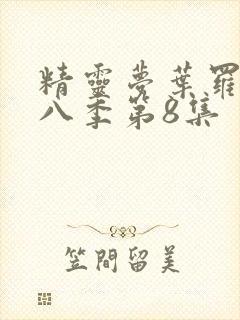 精靈夢葉羅
八季第8集
笠間留美